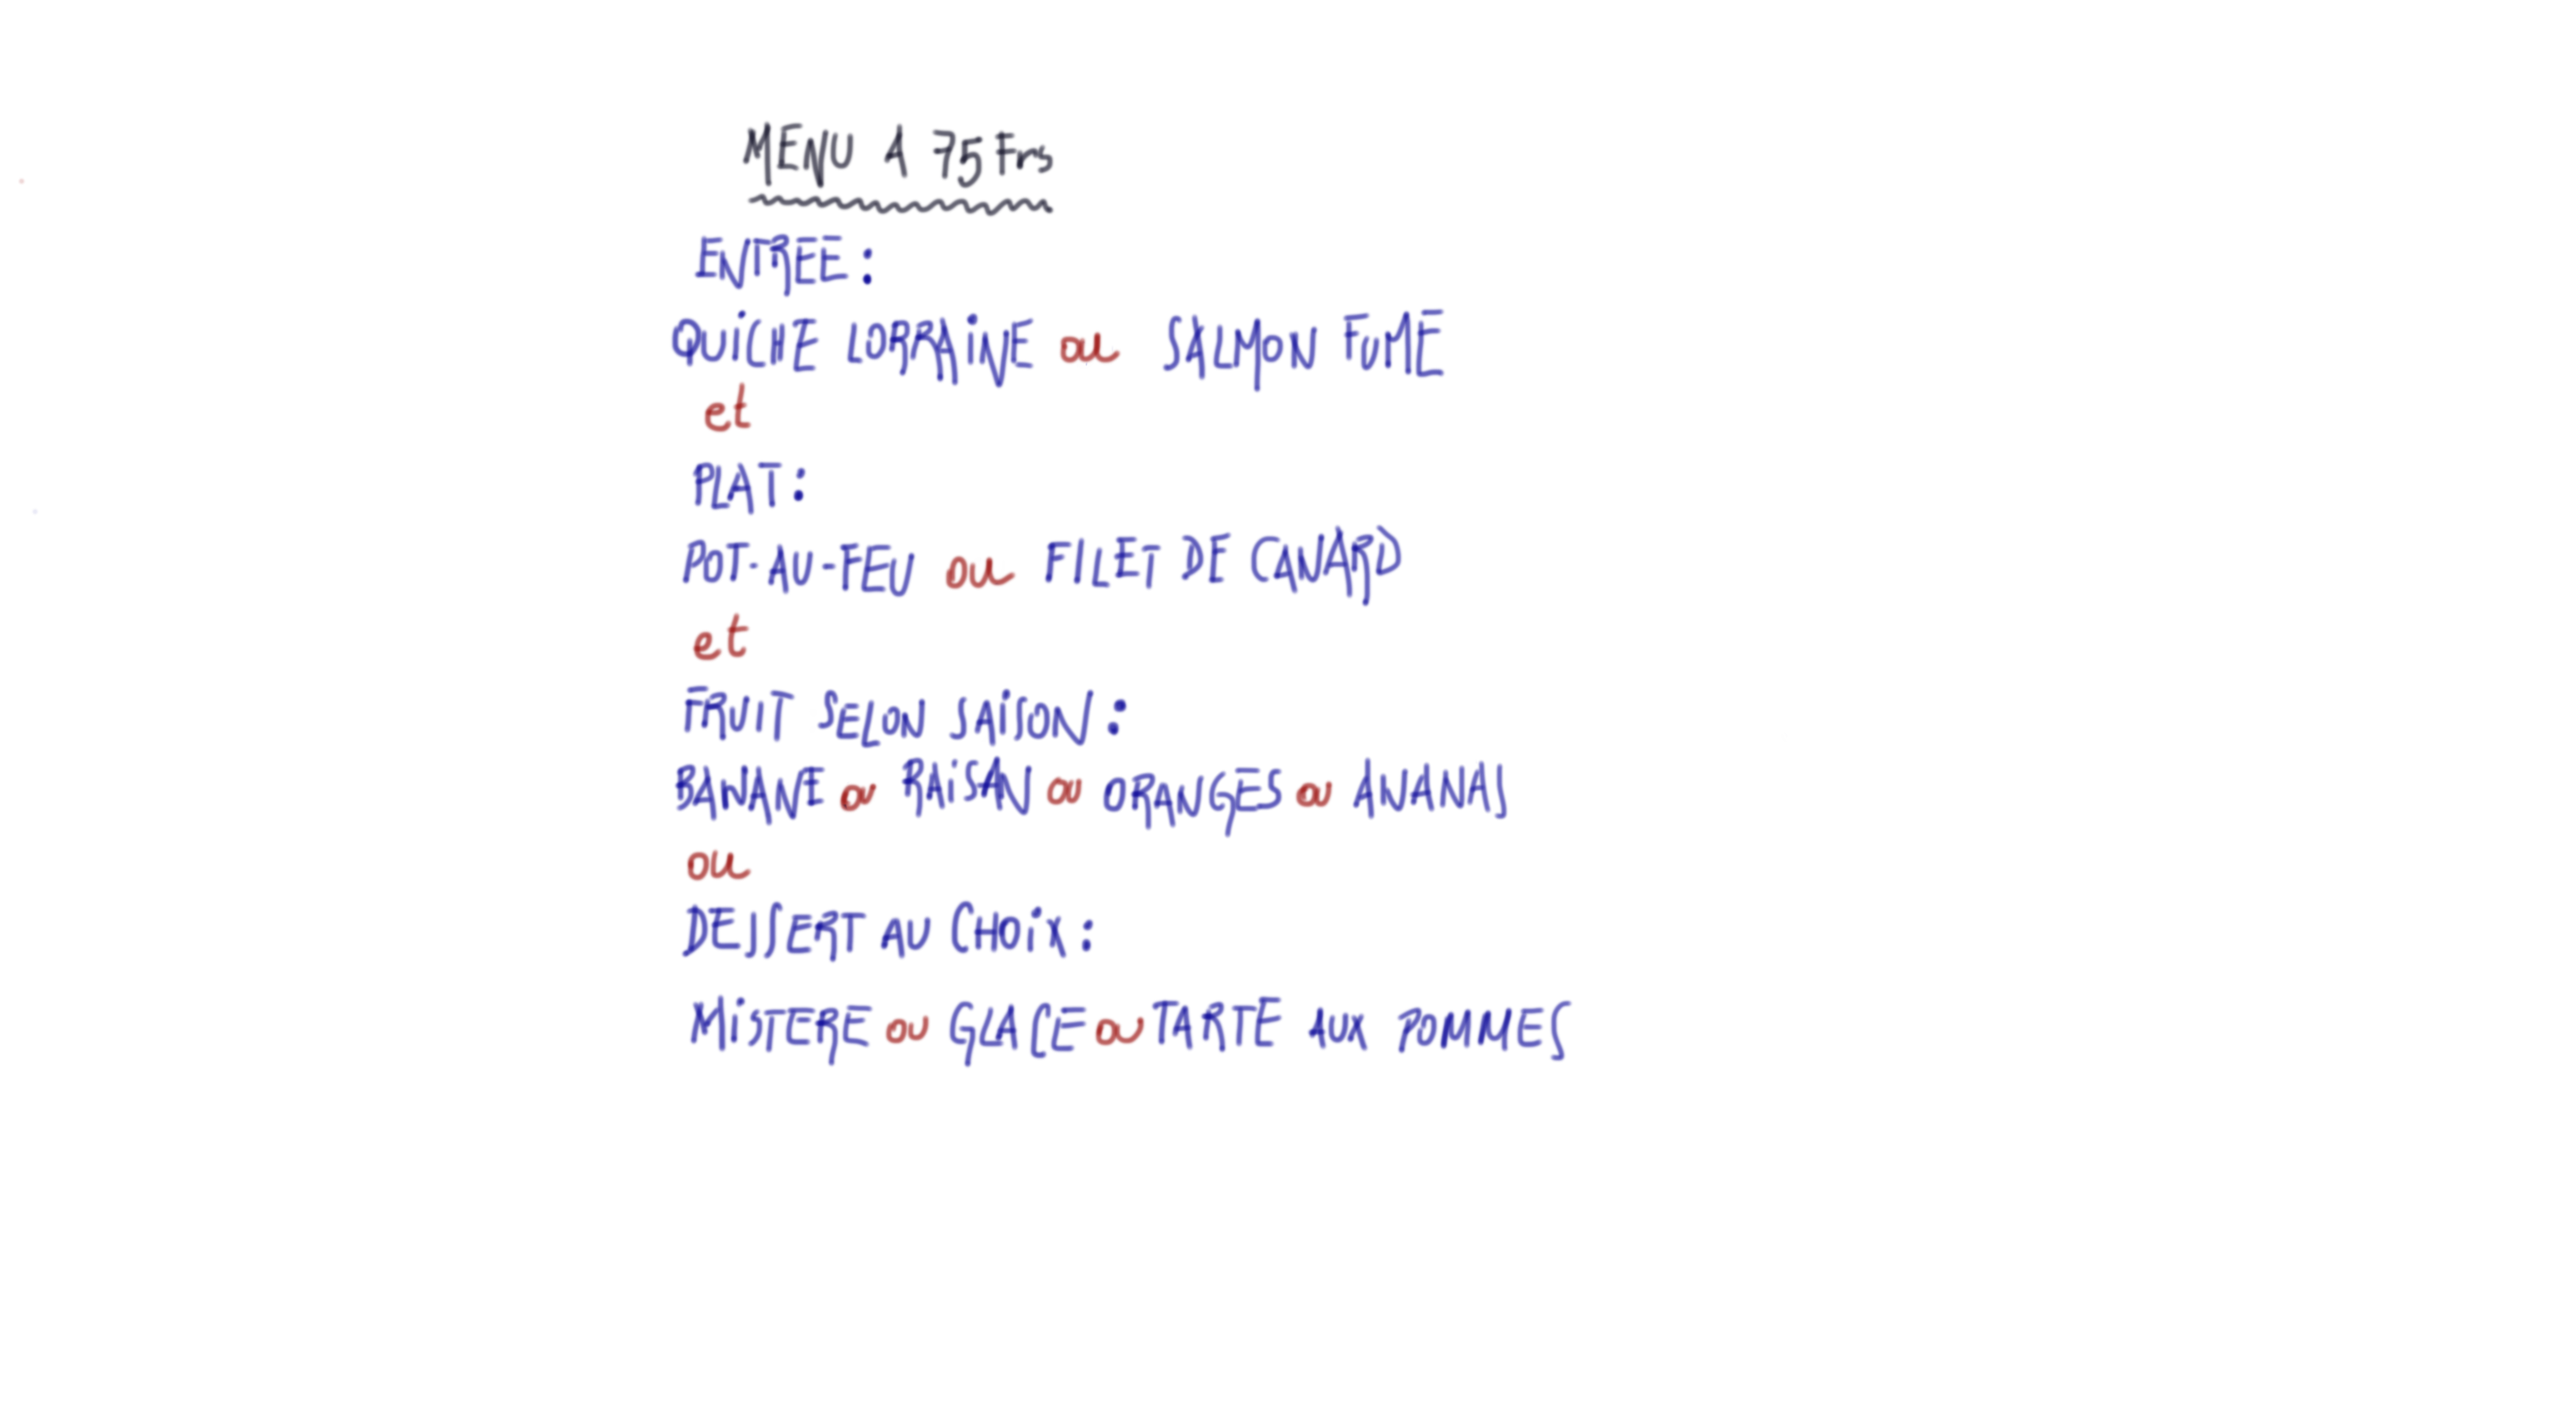 MENU A 75 Frs
ENTREE :
QUiCHE LORRAiNE ou SALMON FUME
et
PLAT :
POT-AU-FEU ou FILET DE CANARD
et
FRUIT SELON SAiSON :
BANANE ou RAiSAN ou ORANGES ou ANANAS
ou
DESSERT AU CHOiX :
MiSTERE ou GLACE ou TARTE AUX POMMES